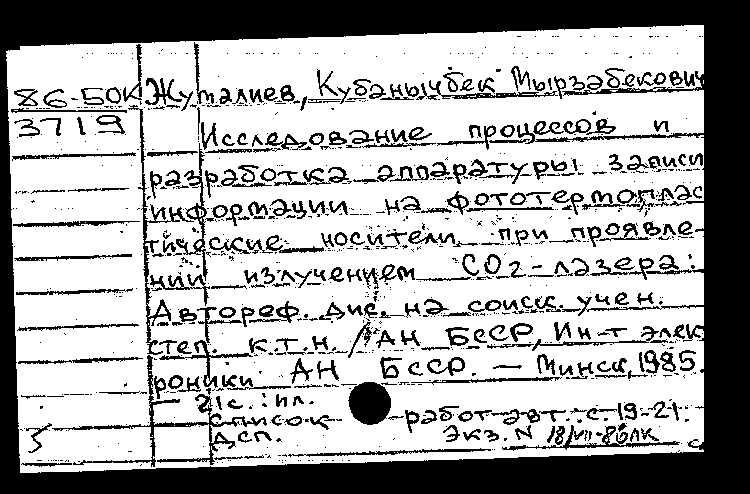 86-БОК Жуталиев, Кубанычбек Мырзабекович
3719 Исследование процессов и
разработка аппаратуры записи
информации на фототермоплас
тические носители при проявле-
нии излучением CO2-лазера:
Автореф. дис. на соиск. учен.
степ. к.т.н. / АН БССР, Ин-т элек
роники АН БССР. — Минск, 1985.
— 21с. : ил.
список работ авт.: с. 19-21.
Дсп. Экз. N